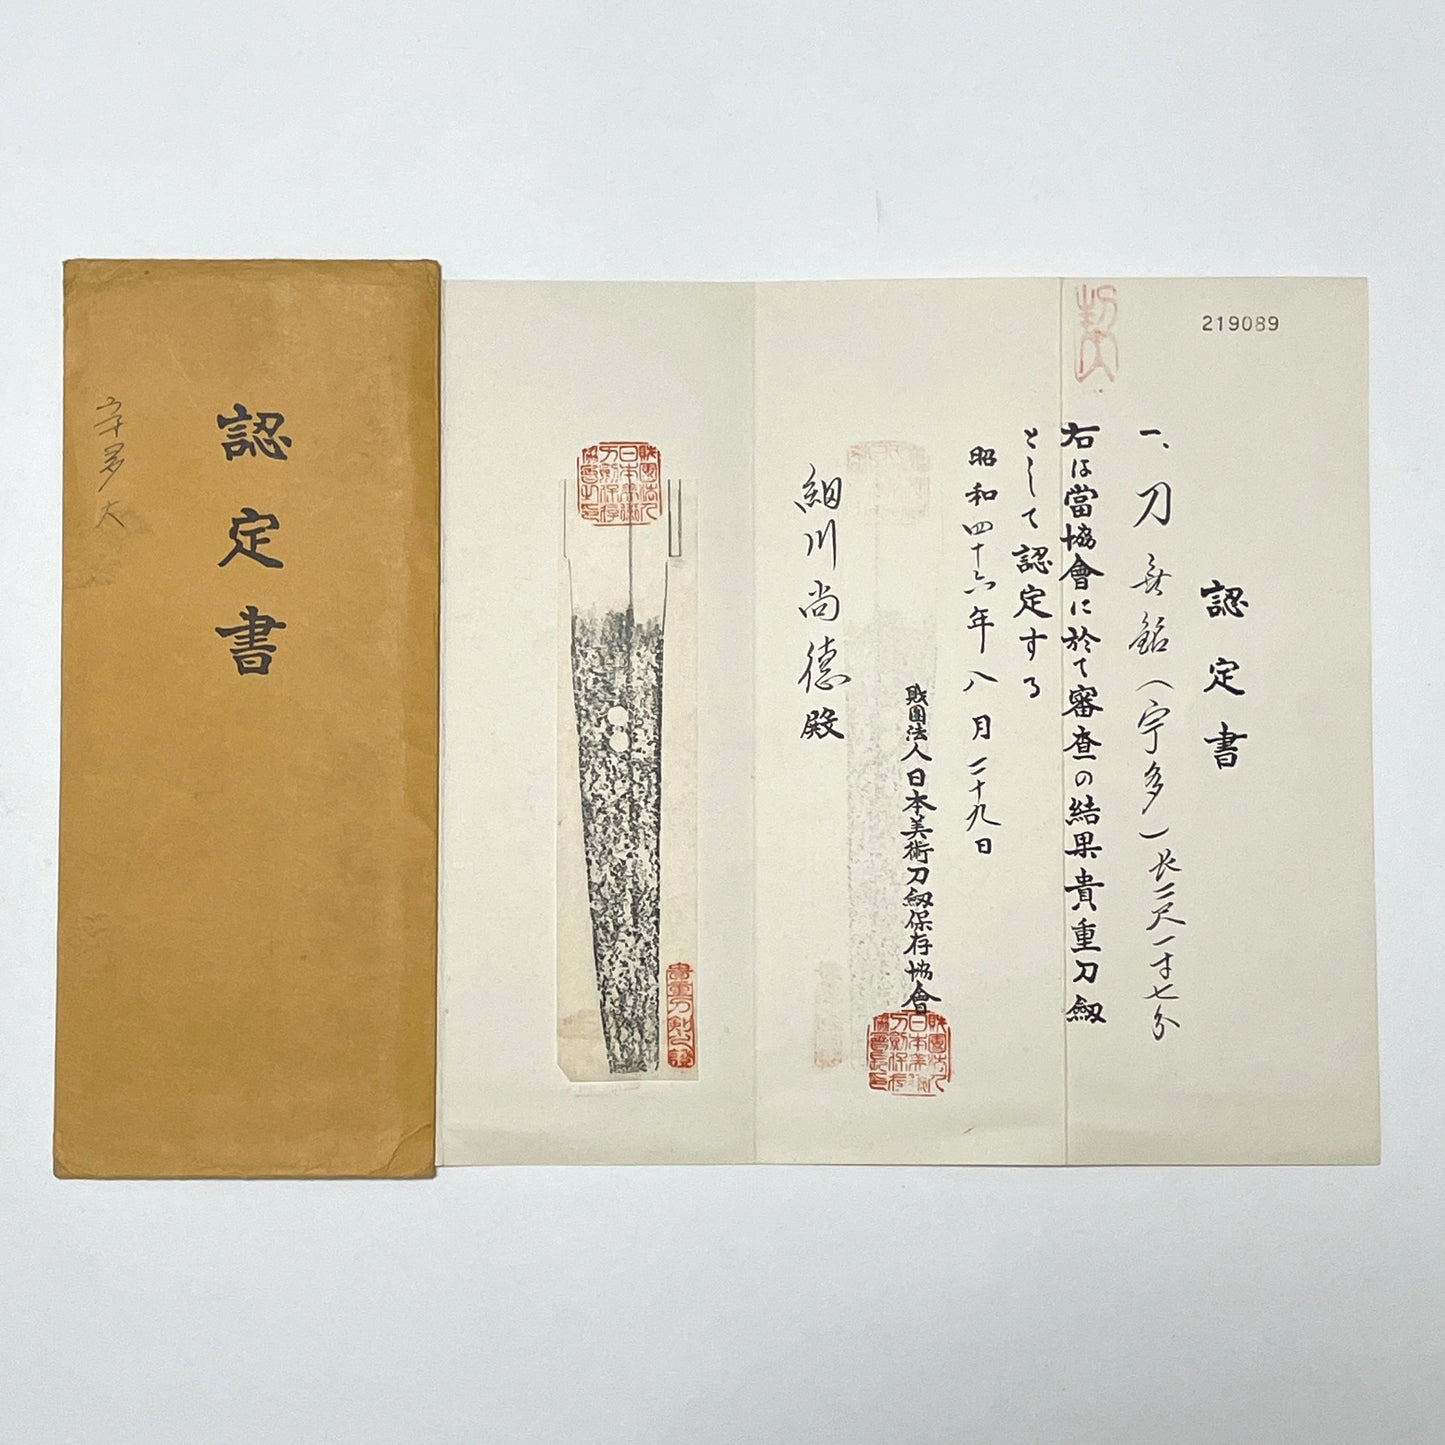 219089
認定書
一、刀 無銘(宇多)長二尺一寸七分
右は當協會に於て審査の結果貴重刀劔
として認定する
昭和四十六年八月二十九日
財團法人日本美術刀劔保存協會
細川尚德殿
財團法人日本美術刀剣保存協會長印
財團法人日本美術刀剣保存協會之印
貴重刀剣之證
認定書
宇多
大